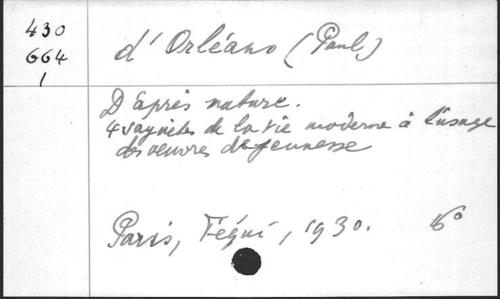 430
664
1
d'Orléans (Paul)
D'après nature.
4 saynètes de la vie moderne à l'usage
des oeuvres de jeunesse
Paris, Téqui, 1930. 16°